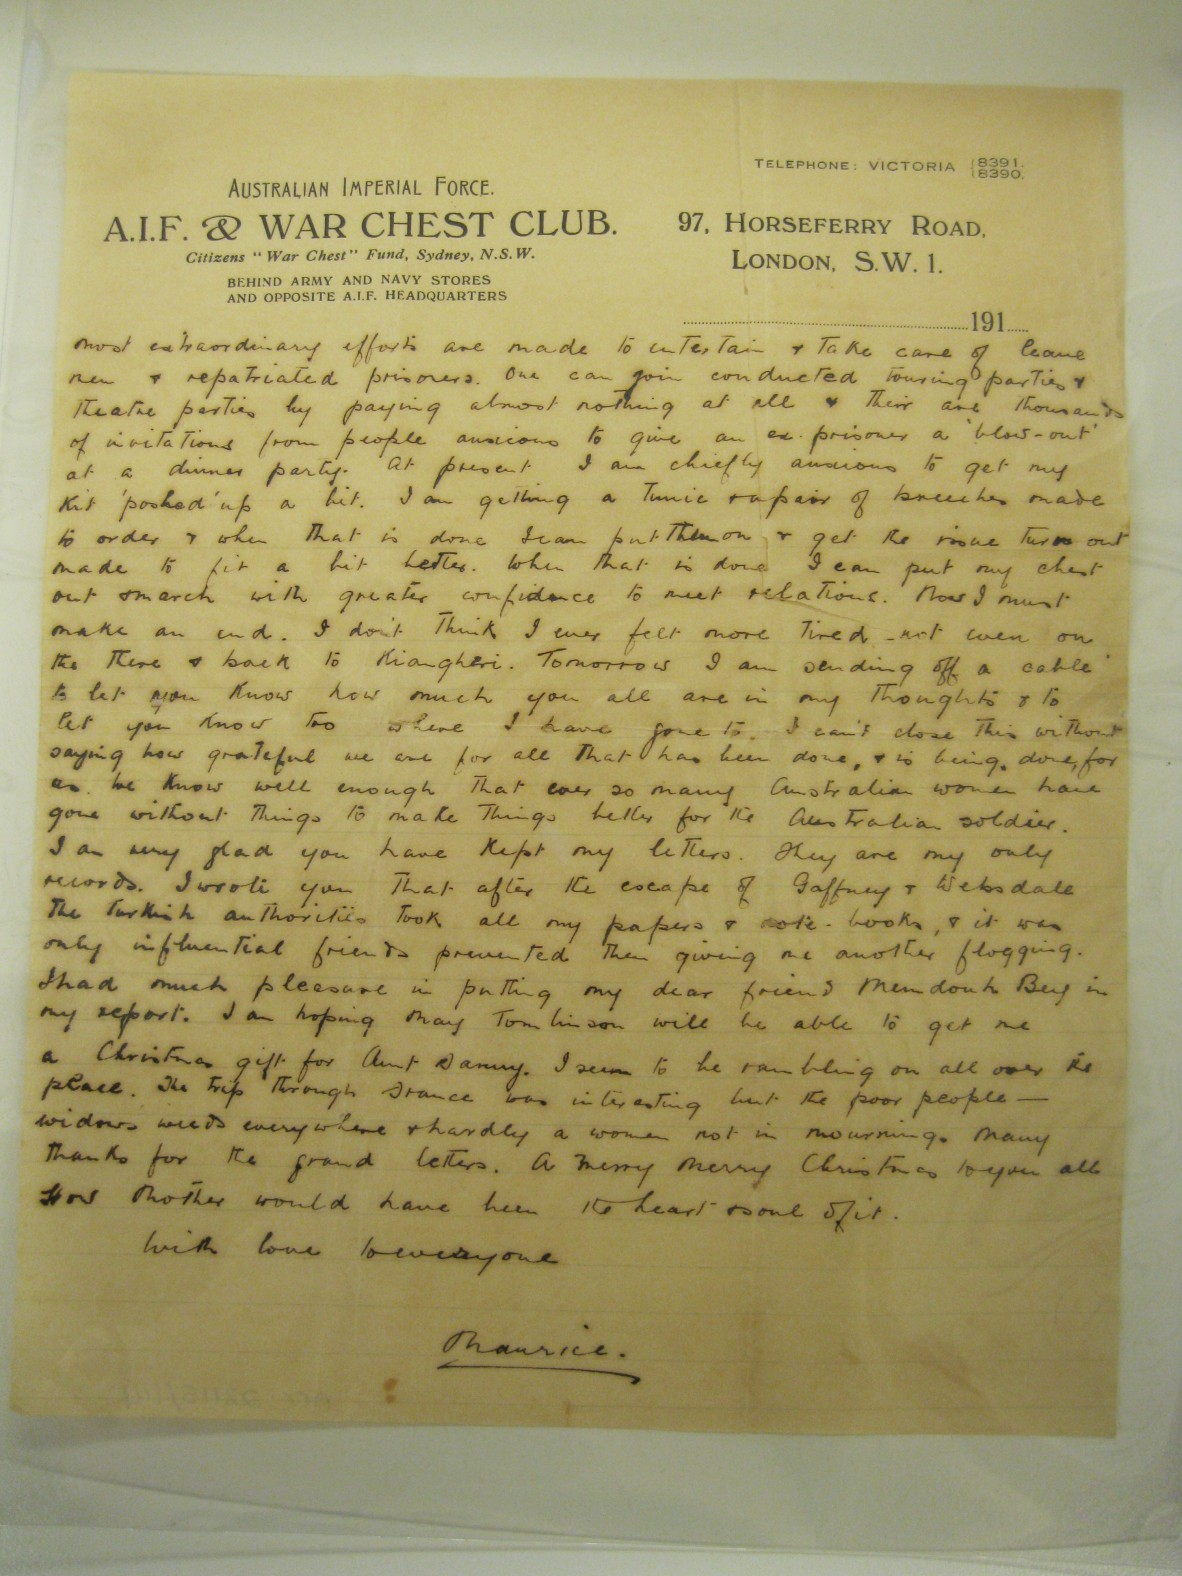 TELEPHONE: VICTORIA {8391.
{8390.
AUSTRALIAN IMPERIAL FORCE.
A.I.F. & WAR CHEST CLUB.
Citizens "War Chest" Fund, Sydney, N.S.W.
BEHIND ARMY AND NAVY STORES
AND OPPOSITE A.I.F. HEADQUARTERS
97, HORSEFERRY ROAD,
LONDON, S.W. 1.
191
most extraordinary efforts are made to entertain & take care of leave
men & repatriated prisoners. One can join conducted touring parties &
theatre parties by paying almost nothing at all & their are thousands
of invitations from people anxious to give an ex-prisoner a 'blow-out'
at a dinner party. At present I am chiefly anxious to get my
kit 'poshed' up a bit. I am getting a tunic & a pair of breeches made
to order & when that is done I can put them on & get the issue turn out
made to fit a bit better. When that is done I can put my chest
out & march with greater confidence to meet relations. Now I must
make an end. I don't think I ever felt more tired - not even on
the there & back to Kiangheri. Tomorrow I am sending off a cable
to let you know how much you all are in my thoughts & to
let you know too where I have gone to. I can't close this without
saying how grateful we are for all that has been done, & is being done, for
us. We know well enough that ever so many Australian women have
gone without things to make things better for the Australian soldier.
I am very glad you have kept my letters. They are my only
records. I wrote you that after the escape of Gaffney & Websdale
the Turkish authorities took all my papers & note-books, & it was
only influential friends prevented them giving me another flogging.
I had much pleasure in putting my dear friend Memdouh Bey in
my report. I am hoping May Tomlinson will be able to get me
a Christmas gift for Aunt Danny. I seem to be rambling on all over the
place. The trip through France was interesting but the poor people —
widows weeds everywhere & hardly a women not in mourning. Many
thanks for the grand letters. A merry merry Christmas to you all
How Mother would have been the heart & soul of it.
With love to everyone
Maurice.